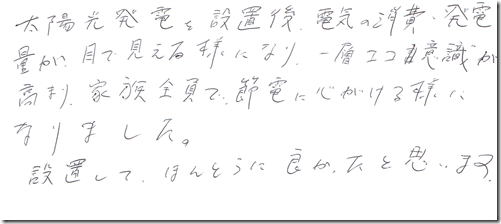 太陽光発電を設置後、電気の消費・発電
量が、目で見える様になり、一層エコ意識が
高まり、家族全員で、節電に心がける様に
なりました。
設置して、ほんとうに良かったと思います。